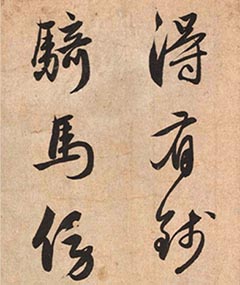 得有錢
騎馬傍